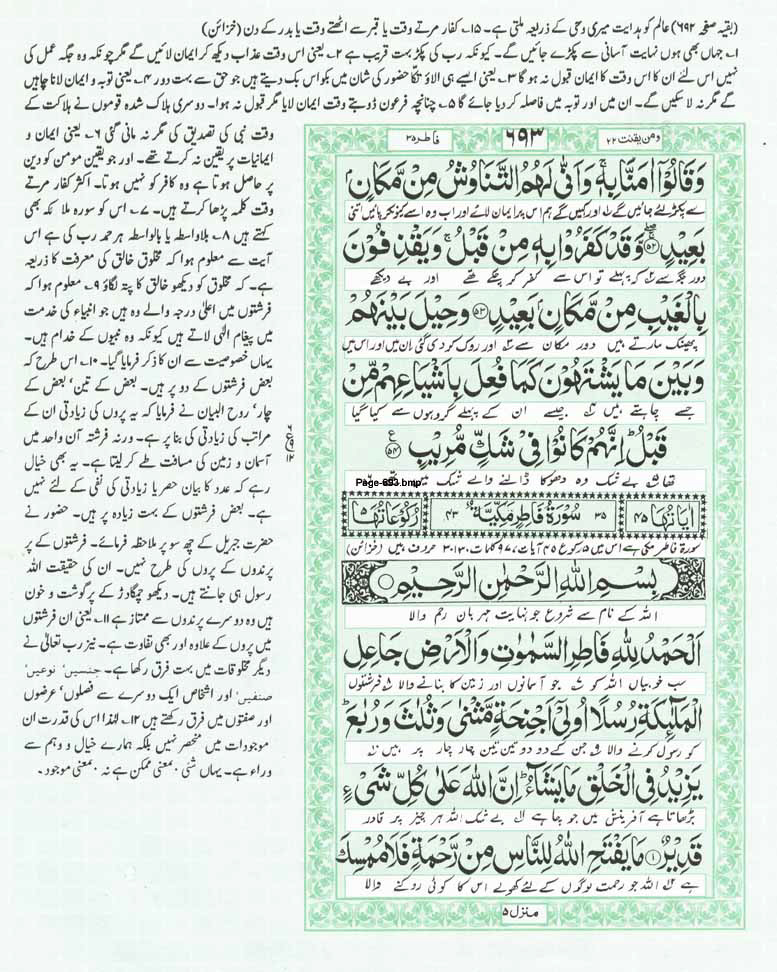 (بقیہ صفحہ ۶۹۲) عالم کو ہدایت میری وحی کے ذریعہ ملتی ہے۔ ۱۵۔ کفار مرتے وقت یا قبر سے اٹھتے وقت یا بدر کے دن (خزائن)
۱۔ جہاں بھی ہوں نہایت آسانی سے پکڑے جائیں گے۔ کیونکہ رب کی پکڑ بہت قریب ہے ۲۔ یعنی اس وقت عذاب دیکھ کر ایمان لائیں گے مگر چونکہ وہ جگہ عمل کی
نہیں اس لئے ان کا اس وقت کا ایمان قبول نہ ہو گا ۳۔ یعنی ایسے ہی الاؤ تکا حضور کی شان میں بکواس بک دیتے ہیں جو حق سے بہت دور ۴۔ یعنی توبہ و ایمان لانا چاہیں
گے مگر نہ لا سکیں گے۔ ان میں اور توبہ میں فاصلہ کر دیا جائے گا ۵۔ چنانچہ فرعون ڈوبتے وقت ایمان لایا مگر قبول نہ ہوا۔ دوسری ہلاک شدہ قوموں نے ہلاکت کے
ومن یقنت ۲۲
۶۹۳
فاطر ۳۵
وَقَالُوْۤا اٰمَنَّا بِهٖ ۚ وَاَنّٰى لَهُمُ التَّنَاوُشُ مِنْ مَّكَانٍۭ
ے پکڑ لئے جائیں گے اور کہیں گے ہم اس پر ایمان لائے اور اب وہ اسے کیونکر پائیں اتنی
بَعِيْدٍ ۚۖ﴿۵۲﴾ وَّقَدْ كَفَرُوْا بِهٖ مِنْ قَبْلُ ۚ وَيَقْذِفُوْنَ
دور جگہ سے کہ پہلے تو اس سے کفر کر چکے تھے اور بے دیکھے
بِالْغَيْبِ مِنْ مَّكَانٍۭ بَعِيْدٍ ﴿۵۳﴾ وَحِيْلَ بَيْنَهُمْ
پھینک مارتے ہیں دور مکان سے اور روک کر دی گئی ان میں اور اس میں
وَبَيْنَ مَا يَشْتَهُوْنَ كَمَا فُعِلَ بِاَشْيَاعِهِمْ مِّنْ
جسے چاہتے ہیں جیسے ان کے پہلے گروہوں سے کیا گیا
قَبْلُ ؕ اِنَّهُمْ كَانُوْا فِىْ شَكٍّ مُّرِيْبٍ ﴿۵۴﴾ ع
تھا بے شک وہ دھوکا ڈالنے والے شک میں تھے ۶
Page-693.bmp
اٰيَاتُهَا ۴۵ ۳۵ سُوْرَةُ فَاطِرٍ مَكِّيَّةٌ ۴۳ رُكُوْعَاتُهَا ۵
سورۃ فاطر مکی ہے اس میں ۵ رکوع ۴۵ آیات، ۹۷۰ کلمات، ۳۱۳۰ حروف ہیں (خزائن)
بِسْمِ اللّٰهِ الرَّحْمٰنِ الرَّحِيْمِ
اللہ کے نام سے شروع جو نہایت مہربان رحم والا
اَلْحَمْدُ لِلّٰهِ فَاطِرِ السَّمٰوٰتِ وَالْاَرْضِ جَاعِلِ
سب خوبیاں اللہ کو جو آسمانوں اور زمین کا بنانے والا ۸ فرشتوں
الْمَلٰٓئِكَةِ رُسُلًا اُولِىْۤ اَجْنِحَةٍ مَّثْنٰى وَثُلٰثَ وَرُبٰعَ ؕ
کو رسول کرنے والا ۹ جن کے دو دو تین تین چار چار پر ہیں
يَزِيْدُ فِى الْخَلْقِ مَا يَشَآءُ ؕ اِنَّ اللّٰهَ عَلٰى كُلِّ شَىْءٍ
بڑھاتا ہے آفرینش میں جو چاہے بے شک اللہ ہر چیز پر قادر
قَدِيْرٌ ﴿۱﴾ مَا يَفْتَحِ اللّٰهُ لِلنَّاسِ مِنْ رَّحْمَةٍ فَلَا مُمْسِكَ
ہے اللہ جو رحمت لوگوں کے لئے کھولے اس کا کوئی روکنے والا
منزل ۵
وقت نبی کی تصدیق کی مگر نہ مانی گئی ۶۔ یعنی ایمان و
ایمانیات پر یقین نہ کرتے تھے۔ اور جو یقین مومن کو دین
پر حاصل ہوتا ہے وہ کافر کو نہیں ہوتا۔ اکثر کفار مرتے
وقت کلمہ پڑھا کرتے ہیں۔ ۷۔ اس کو سورہ ملائکہ بھی
کہتے ہیں ۸۔ بلاواسطہ یا بالواسطہ ہر حمد رب کی ہے اس
آیت سے معلوم ہوا کہ مخلوق خالق کی معرفت کا ذریعہ
ہے۔ کہ مخلوق کو دیکھو خالق کا پتہ لگاؤ ۹۔ معلوم ہوا کہ
فرشتوں میں اعلیٰ درجہ والے وہ ہیں جو انبیاء کی خدمت
میں پیغام الٰہی لاتے ہیں کیونکہ وہ نبیوں کے خدام ہیں۔
یہاں خصوصیت سے ان کا ذکر فرمایا گیا۔ ۱۰۔ اس طرح کہ
بعض فرشتوں کے دو پر ہیں۔ بعض کے تین، بعض کے
چار، روح البیان نے فرمایا کہ یہ پروں کی زیادتی ان کے
مراتب کی زیادتی کی بنا پر ہے۔ ورنہ فرشتہ آن واحد میں
آسمان و زمین کی مسافت طے کر لیتا ہے۔ یہ بھی خیال
رہے کہ عدد کا بیان حصر یا زیادتی کی نفی کے لئے نہیں
ہے۔ بعض فرشتوں کے بہت زیادہ پر ہیں۔ حضور نے
حضرت جبریل کے چھ سو پر ملاحظہ فرمائے۔ فرشتوں کے پر
پرندوں کے پروں کی طرح نہیں۔ ان کی حقیقت اللہ
رسول ہی جانتے ہیں۔ دیکھو چمگادڑ کے پر گوشت و خون
ہیں وہ دوسرے پرندوں سے ممتاز ہے ۱۱۔ یعنی ان فرشتوں
میں پروں کے علاوہ اور بھی تفاوت ہے۔ نیز رب تعالیٰ نے
دیگر مخلوقات میں بہت فرق رکھا ہے۔ جنسیں، نوعیں،
صنفیں، اور اشخاص ایک دوسرے سے فصلوں، عرضوں
اور صفتوں میں فرق رکھتے ہیں ۱۲۔ لہٰذا اس کی قدرت ان
موجودات میں منحصر نہیں بلکہ ہمارے خیال و وہم سے
وراء ہے۔ یہاں شئی بمعنی ممکن ہے نہ بمعنی موجود۔